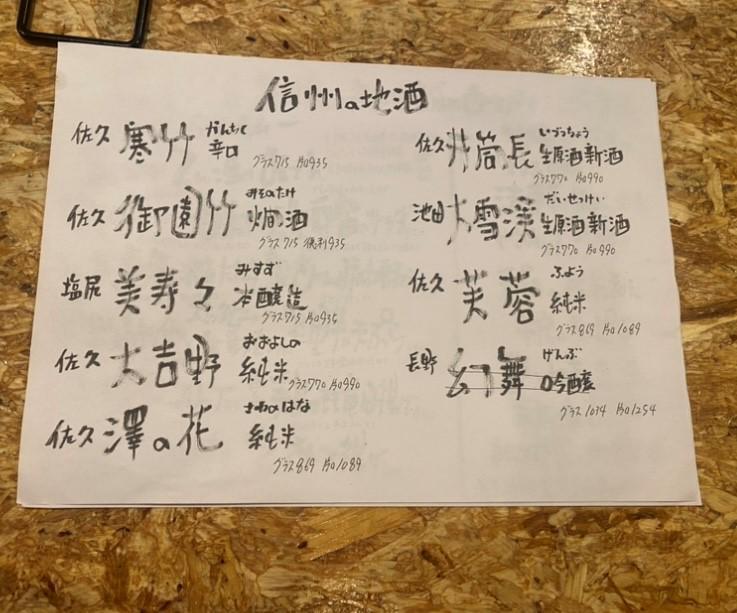 信州の地酒
かんちく
佐久 寒竹 辛口
グラス715 片口935
みそのたけ
佐久 御園竹 燗酒
グラス715 徳利935
みすず
塩尻 美寿々 本醸造
グラス715 片口935
おおよしの
佐久 大吉野 純米
グラス770 片口990
さわのはな
佐久 澤の花 純米
グラス869 片口1089
いづつちょう
佐久 井筒長 生原酒新酒
グラス770 片口990
だいせっけい
池田 大雪渓 生原酒新酒
グラス770 片口990
ふよう
佐久 芙蓉 純米
グラス869 片口1089
げんぶ
長野 幻舞 吟醸
グラス1034 片口1254